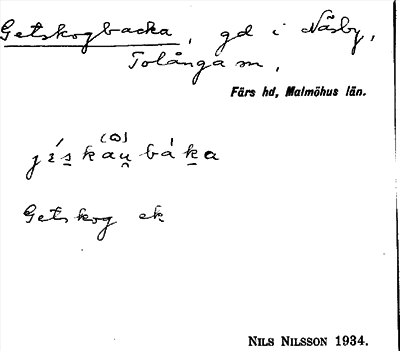 Getskogbacka, gd i Näsby,
Tolånga sn,
Färs hd, Malmöhus län.
Getskog ek
NILS NILSSON 1934.